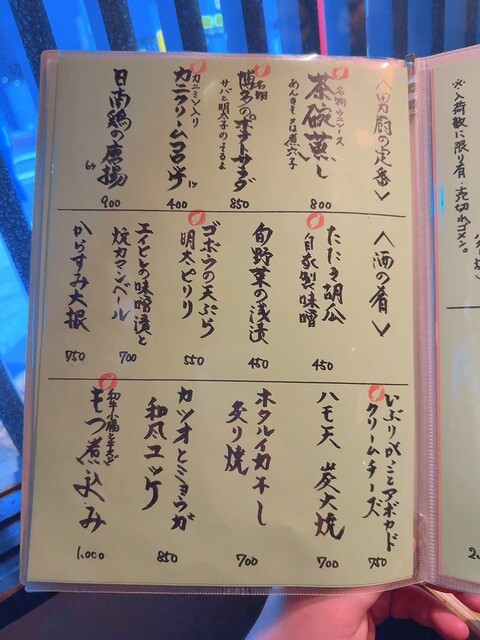 〈男厨の定番〉
名物 ウニソース
茶碗蒸し
あんきも又は煮穴子
800
名物
博多のポテトサラダ
サバと明太子のまるよ
850
カニミソ入り
カニクリームコロッケ
1ヶ
400
日南鶏の唐揚
6ヶ
900
〈酒の肴〉
たたき胡瓜
自家製味噌
450
旬野菜の浅漬
450
ゴボウの天ぷら
明太ピリリ
550
エイヒレの味噌漬と
焼カマンベール
700
からすみ大根
750
いぶりがっことアボカド
クリームチーズ
750
ハモ天 炭火焼
700
ホタルイカ干し
炙り焼
700
カツオとミョウガ
和風ユッケ
850
和牛小腸と牛すじ
もつ煮込み
1,000
※入荷数に限り有 売切れゴメン。